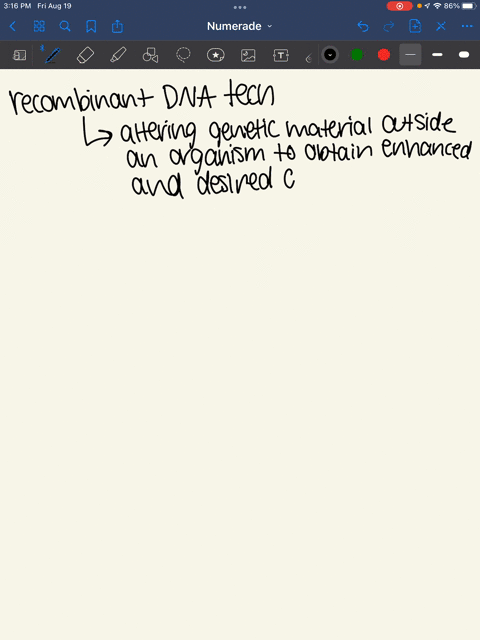 3:16 PM Fri Aug 19
86%
Numerade
recombinant DNA tech
altering genetic material outside
an organism to obtain enhanced
and desired c